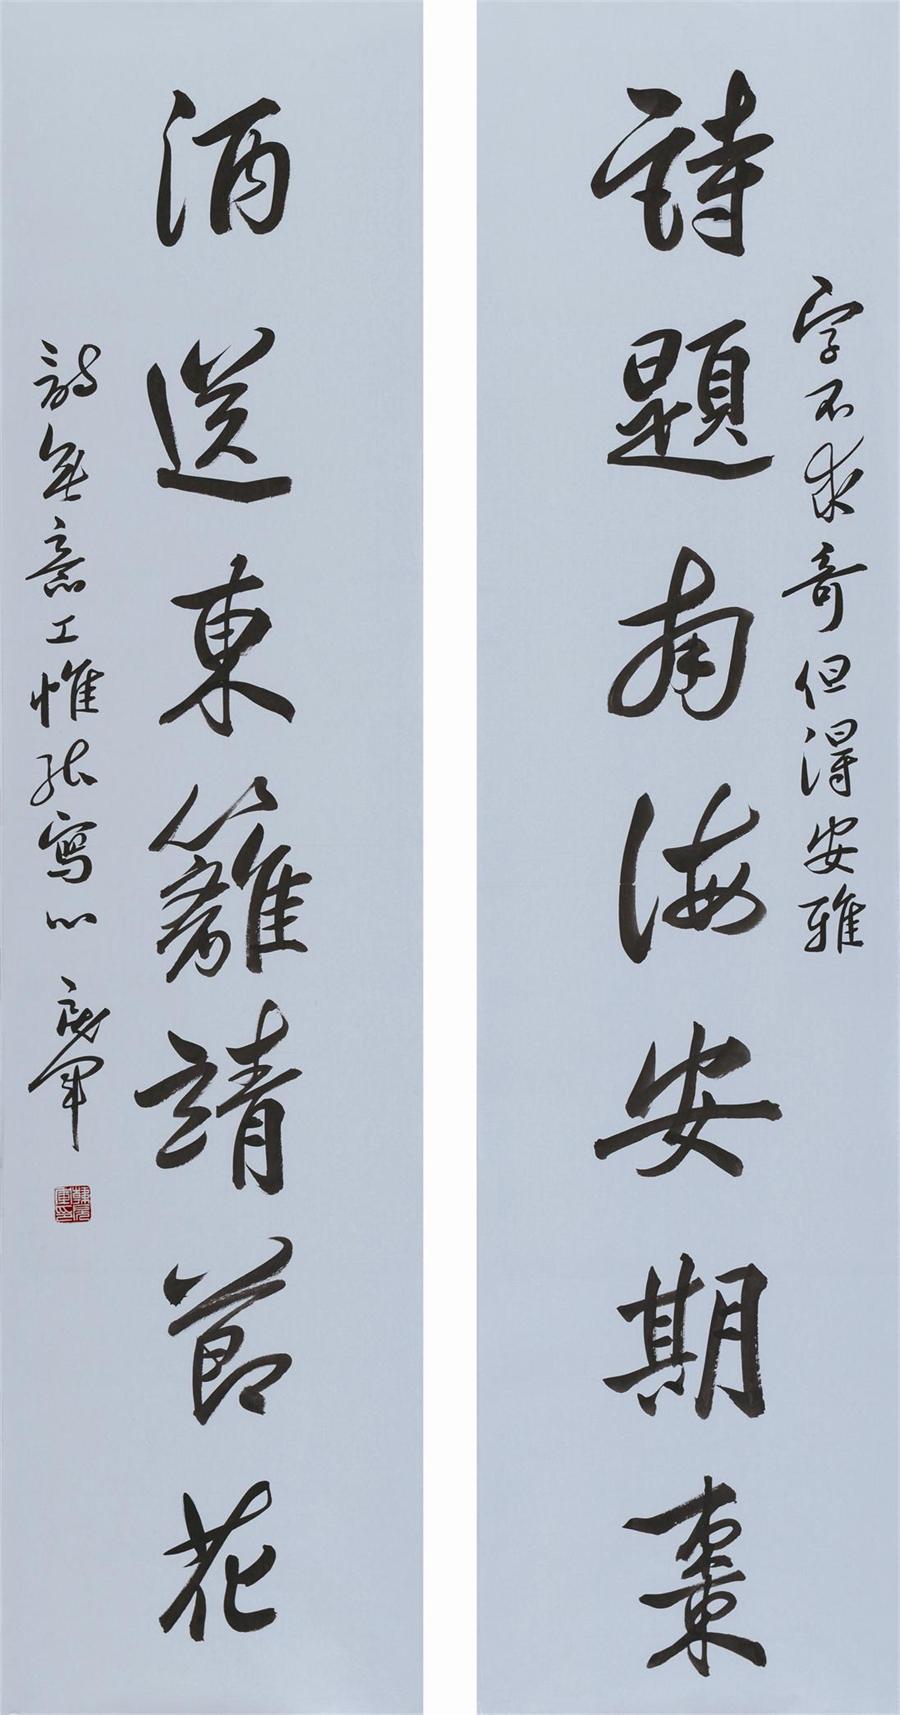 字不求奇但得安雅
詩題南海安期棗
酒送東籬靖節花
詩無意工惟能寫心